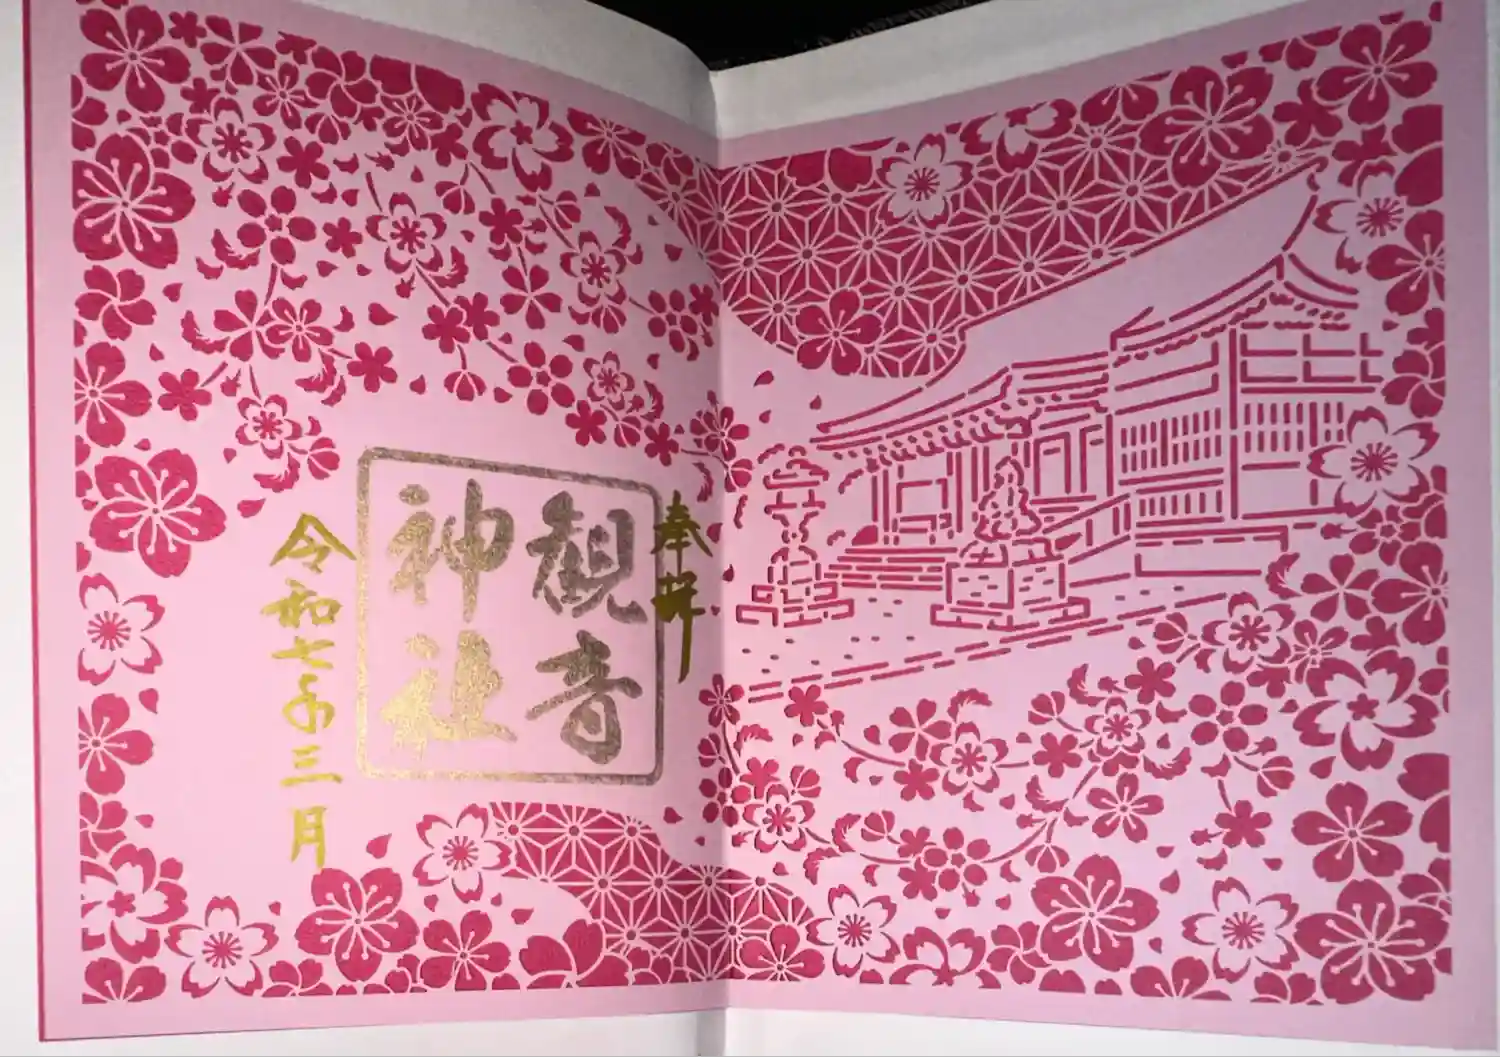 奉拝
観音
神社
令和七年三月